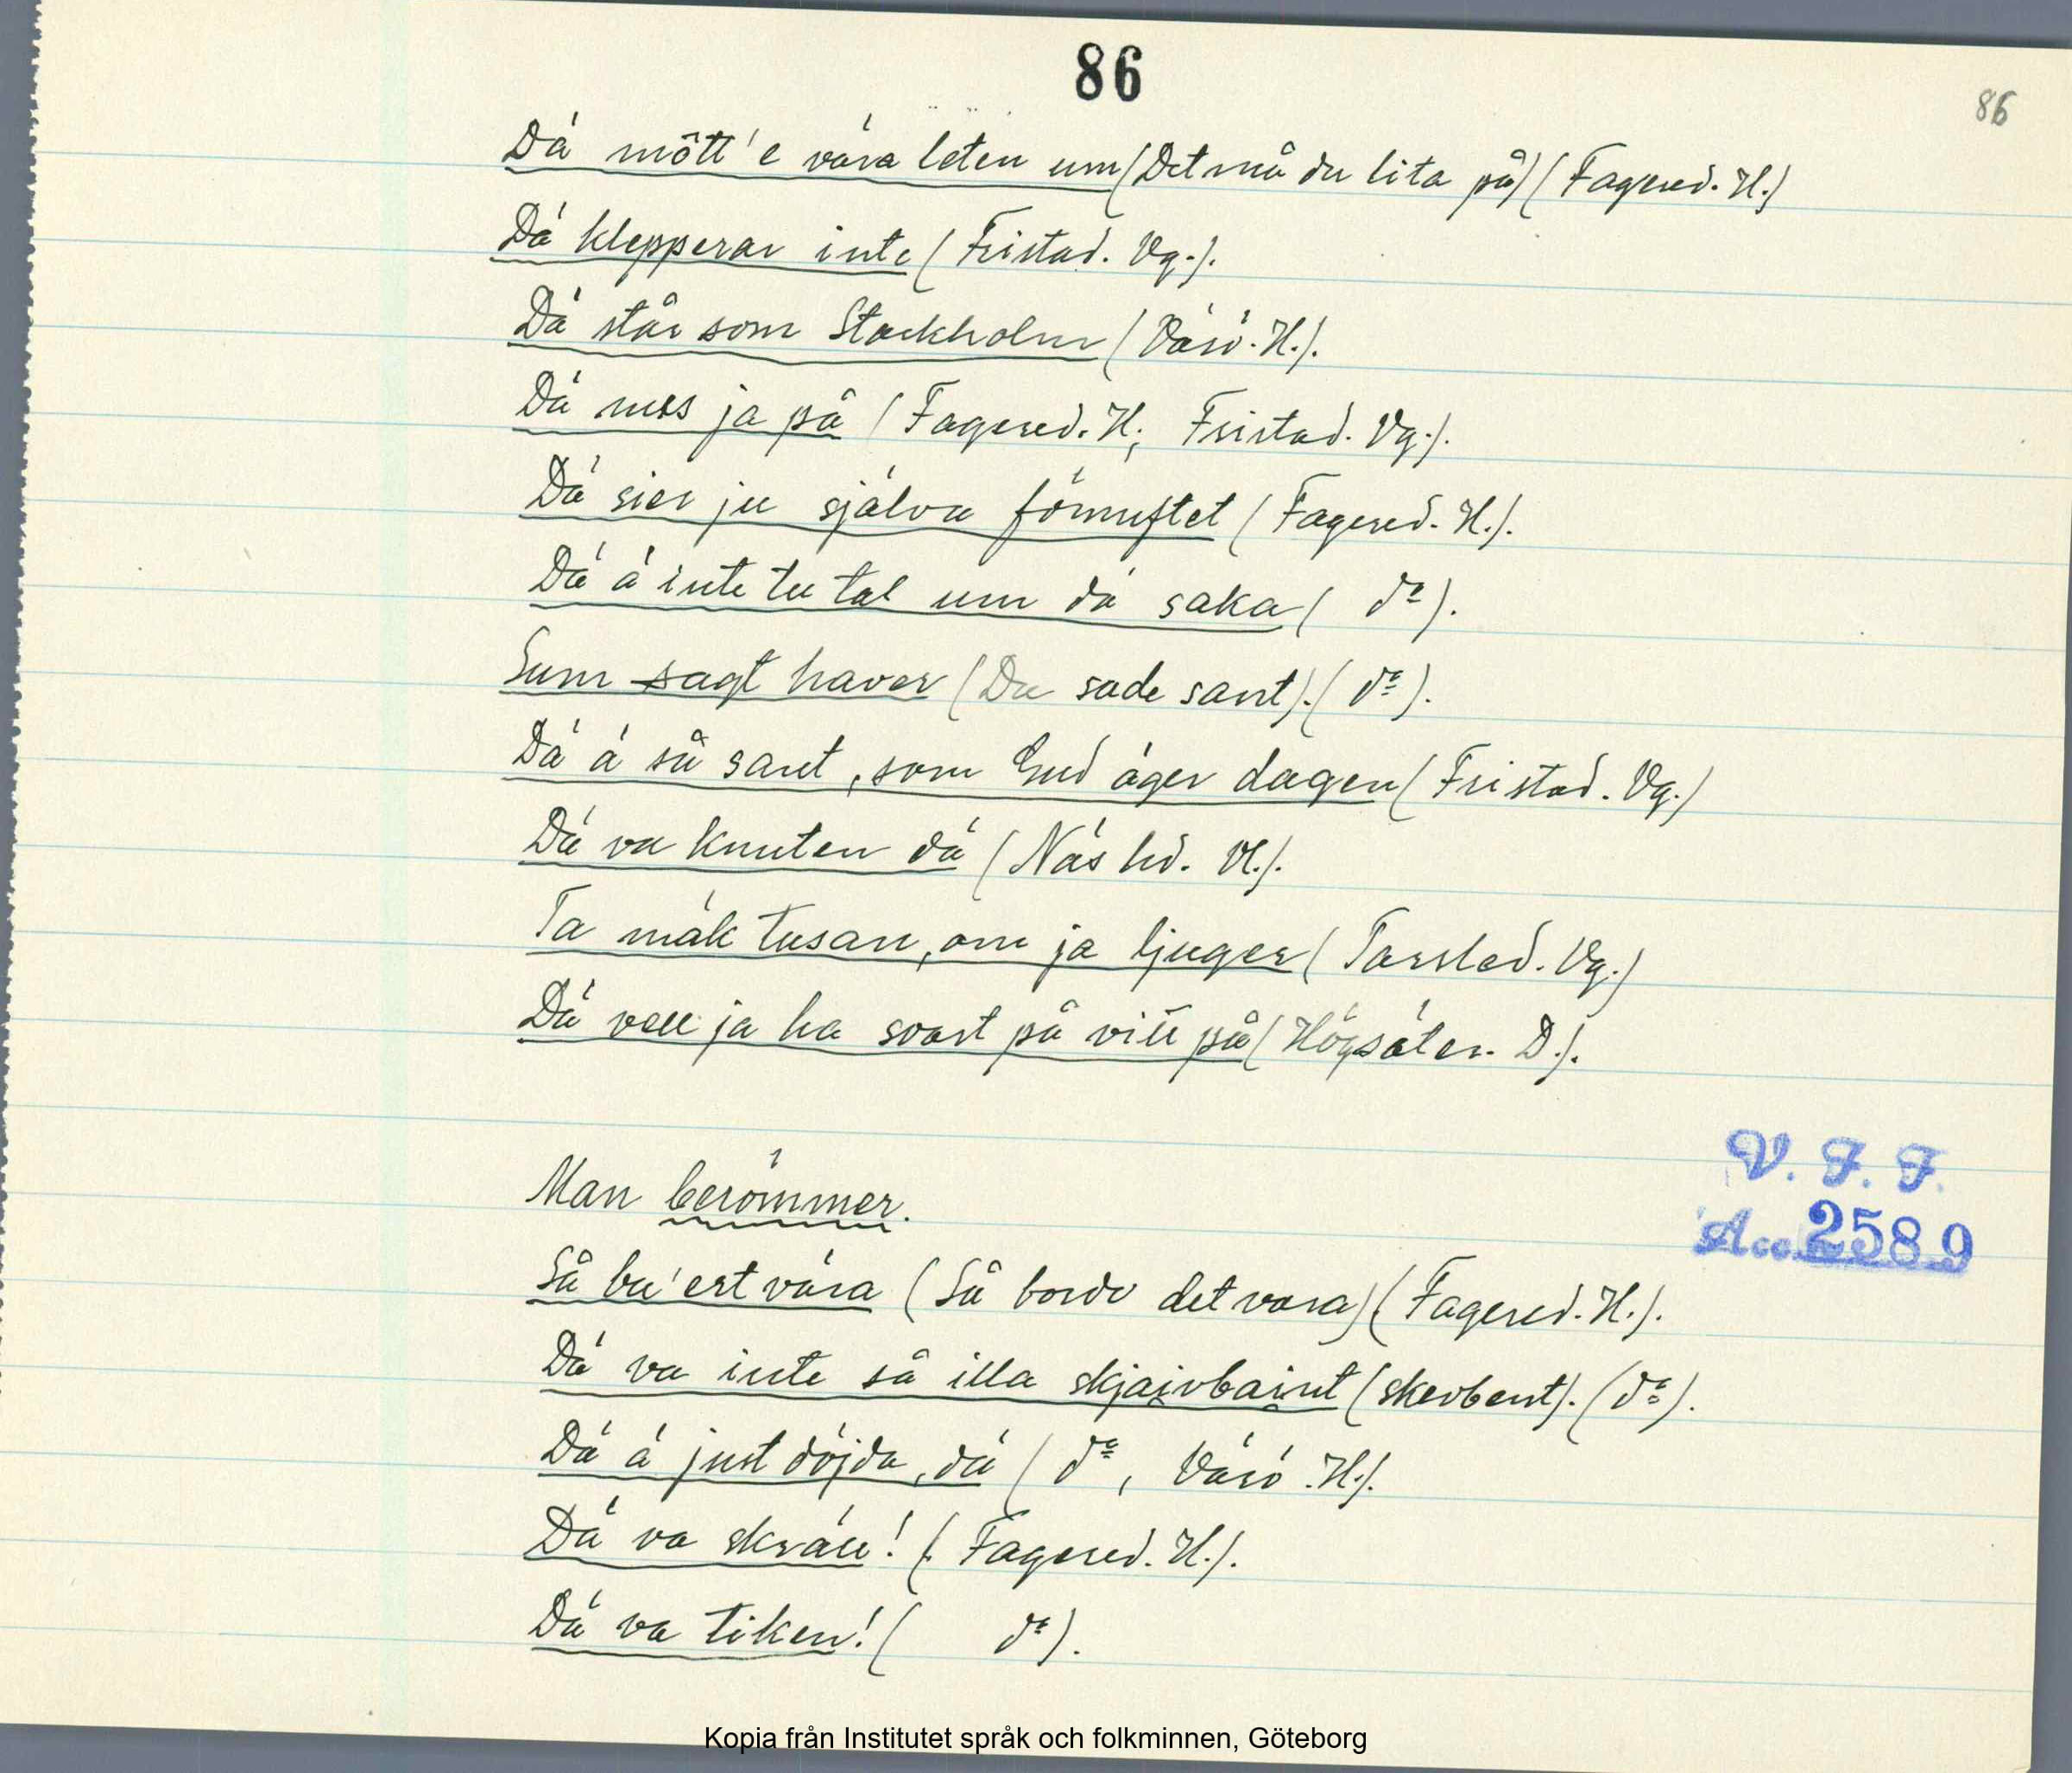 86
86
Dä mött'e vära leten um (Det må du lita på) (Fagered. H.)
Dä klepperar inte (Fristad. Vg.).
Dä står som Stockholm (Värö. H.).
Dä mes ja på (Fagered. H; Fristad. Vg.).
Dä sier ju själva förnuftet (Fagered. H.).
Dä ä inte tu tal um dä saka (do).
Sum sagt haver (Du sade sant). (do).
Dä ä så sant, som Gud äger dagen (Fristad. Vg.)
Dä va knuten dä (Näs hd. Vl.).
Ta mäk tusan, om ja ljuger (Tarsled. Vg.)
Dä vell ja ha svart på vitt på (Högsäter. D.).
Man berömmer.
V. F. F.
Acc. 2589
Så bu'ert vära (Så borde det vara) (Fagered. H.).
Dä va inte så illa skjaivbaint (skevbent). (do).
Dä ä just döjda, dä (do, Värö. H.).
Dä va skräll! (Fagered. H.).
Dä va tiken! (do).
Kopia från Institutet språk och folkminnen, Göteborg